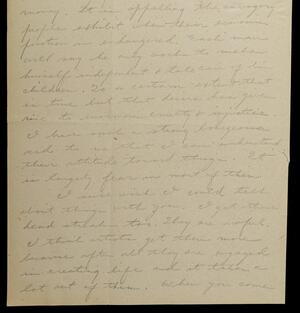 money. It is appalling the savagery
people exhibit when their economic
position is endangered. Each man
will say he only wants to make
himself independent & take care of his
children. To a certain extent that
is true but that desire has given
rise to enormous cruelty & injustice.
I have such a strong bourgeois
side to me that I can understand
their attitude toward things. It
is largely fear in most of them
I sure wish I could talk
about things with you. I get these
dead stretches too. They are awful.
I think artists get them more
because after all they are engaged
in creating life and it takes a
lot out of them. When you come